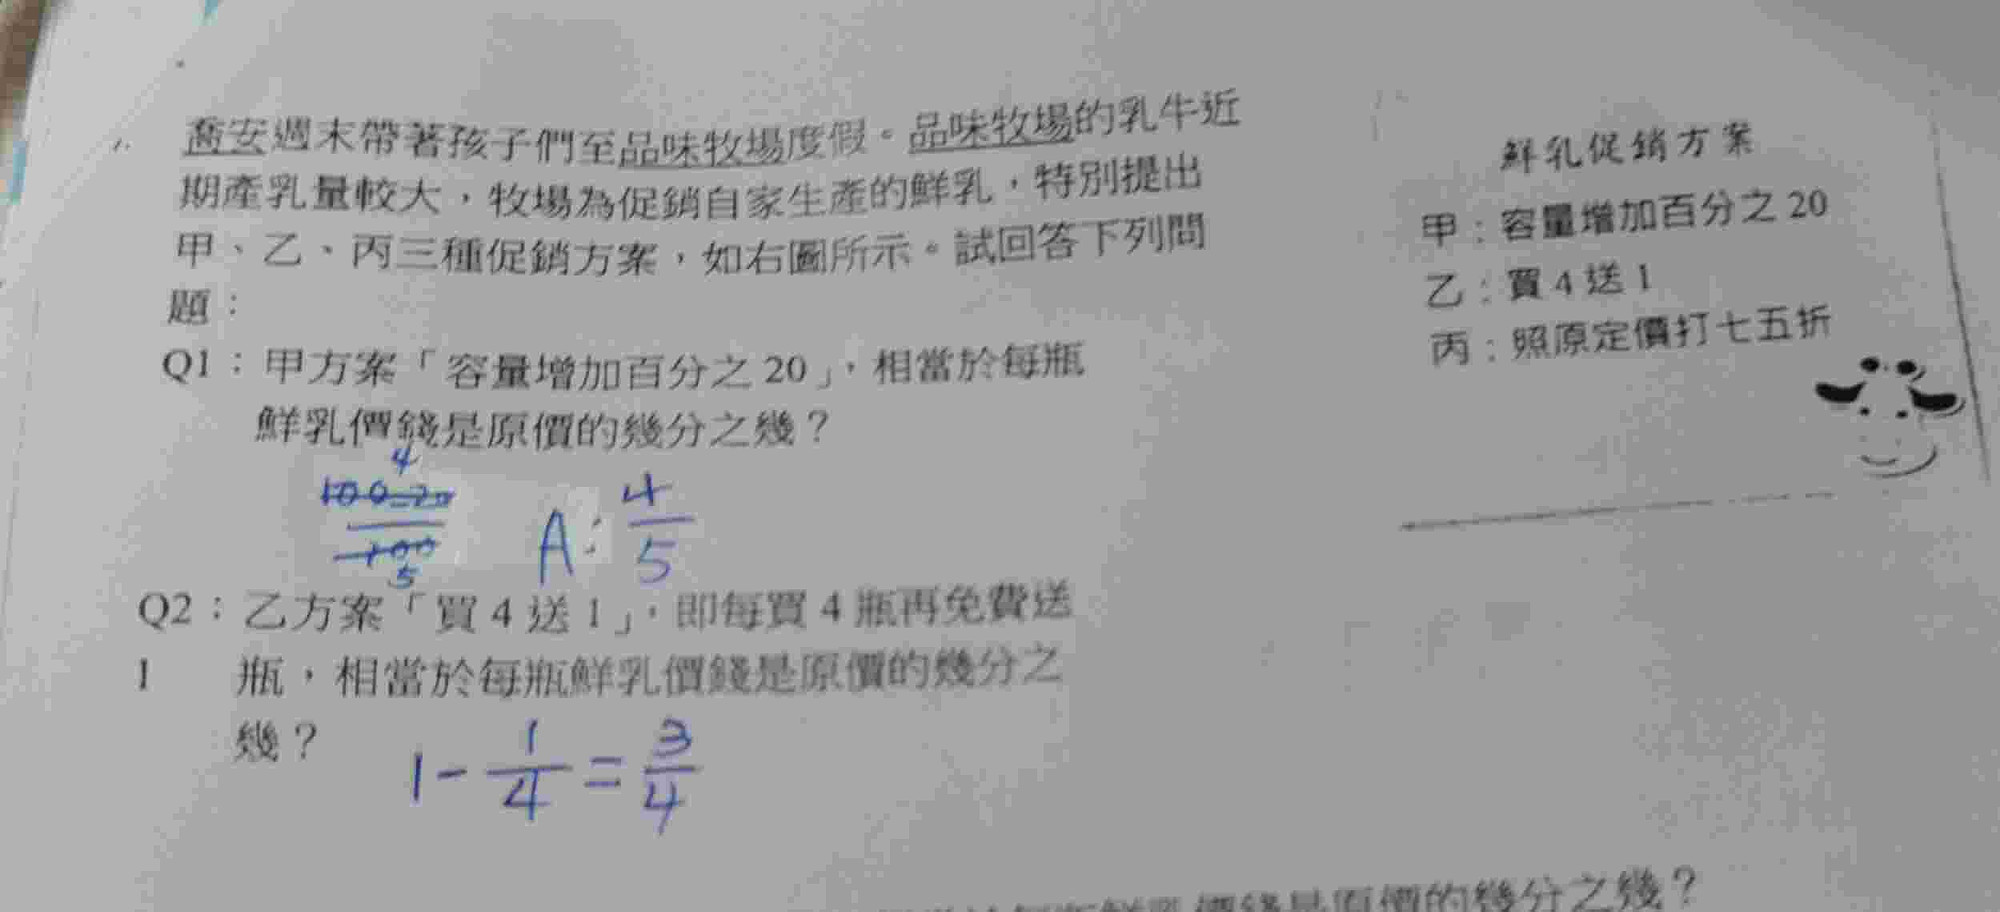 喬安週末帶著孩子們至品味牧場度假。品味牧場的乳牛近
期產乳量較大,牧場為促銷自家生產的鮮乳,特別提出
甲、乙、丙三種促銷方案,如右圖所示。試回答下列問
題:
鮮乳促銷方案
甲:容量增加百分之20
乙:買4送1
丙:照原定價打七五折
Q1:甲方案「容量增加百分之20」,相當於每瓶
鮮乳價錢是原價的幾分之幾?
4
100-20
100
5
A: 4/5
Q2:乙方案「買4送1」,即每買4瓶再免費送
1 瓶,相當於每瓶鮮乳價錢是原價的幾分之
幾?
1-1/4=3/4
鮮乳價錢是原價的幾分之幾?